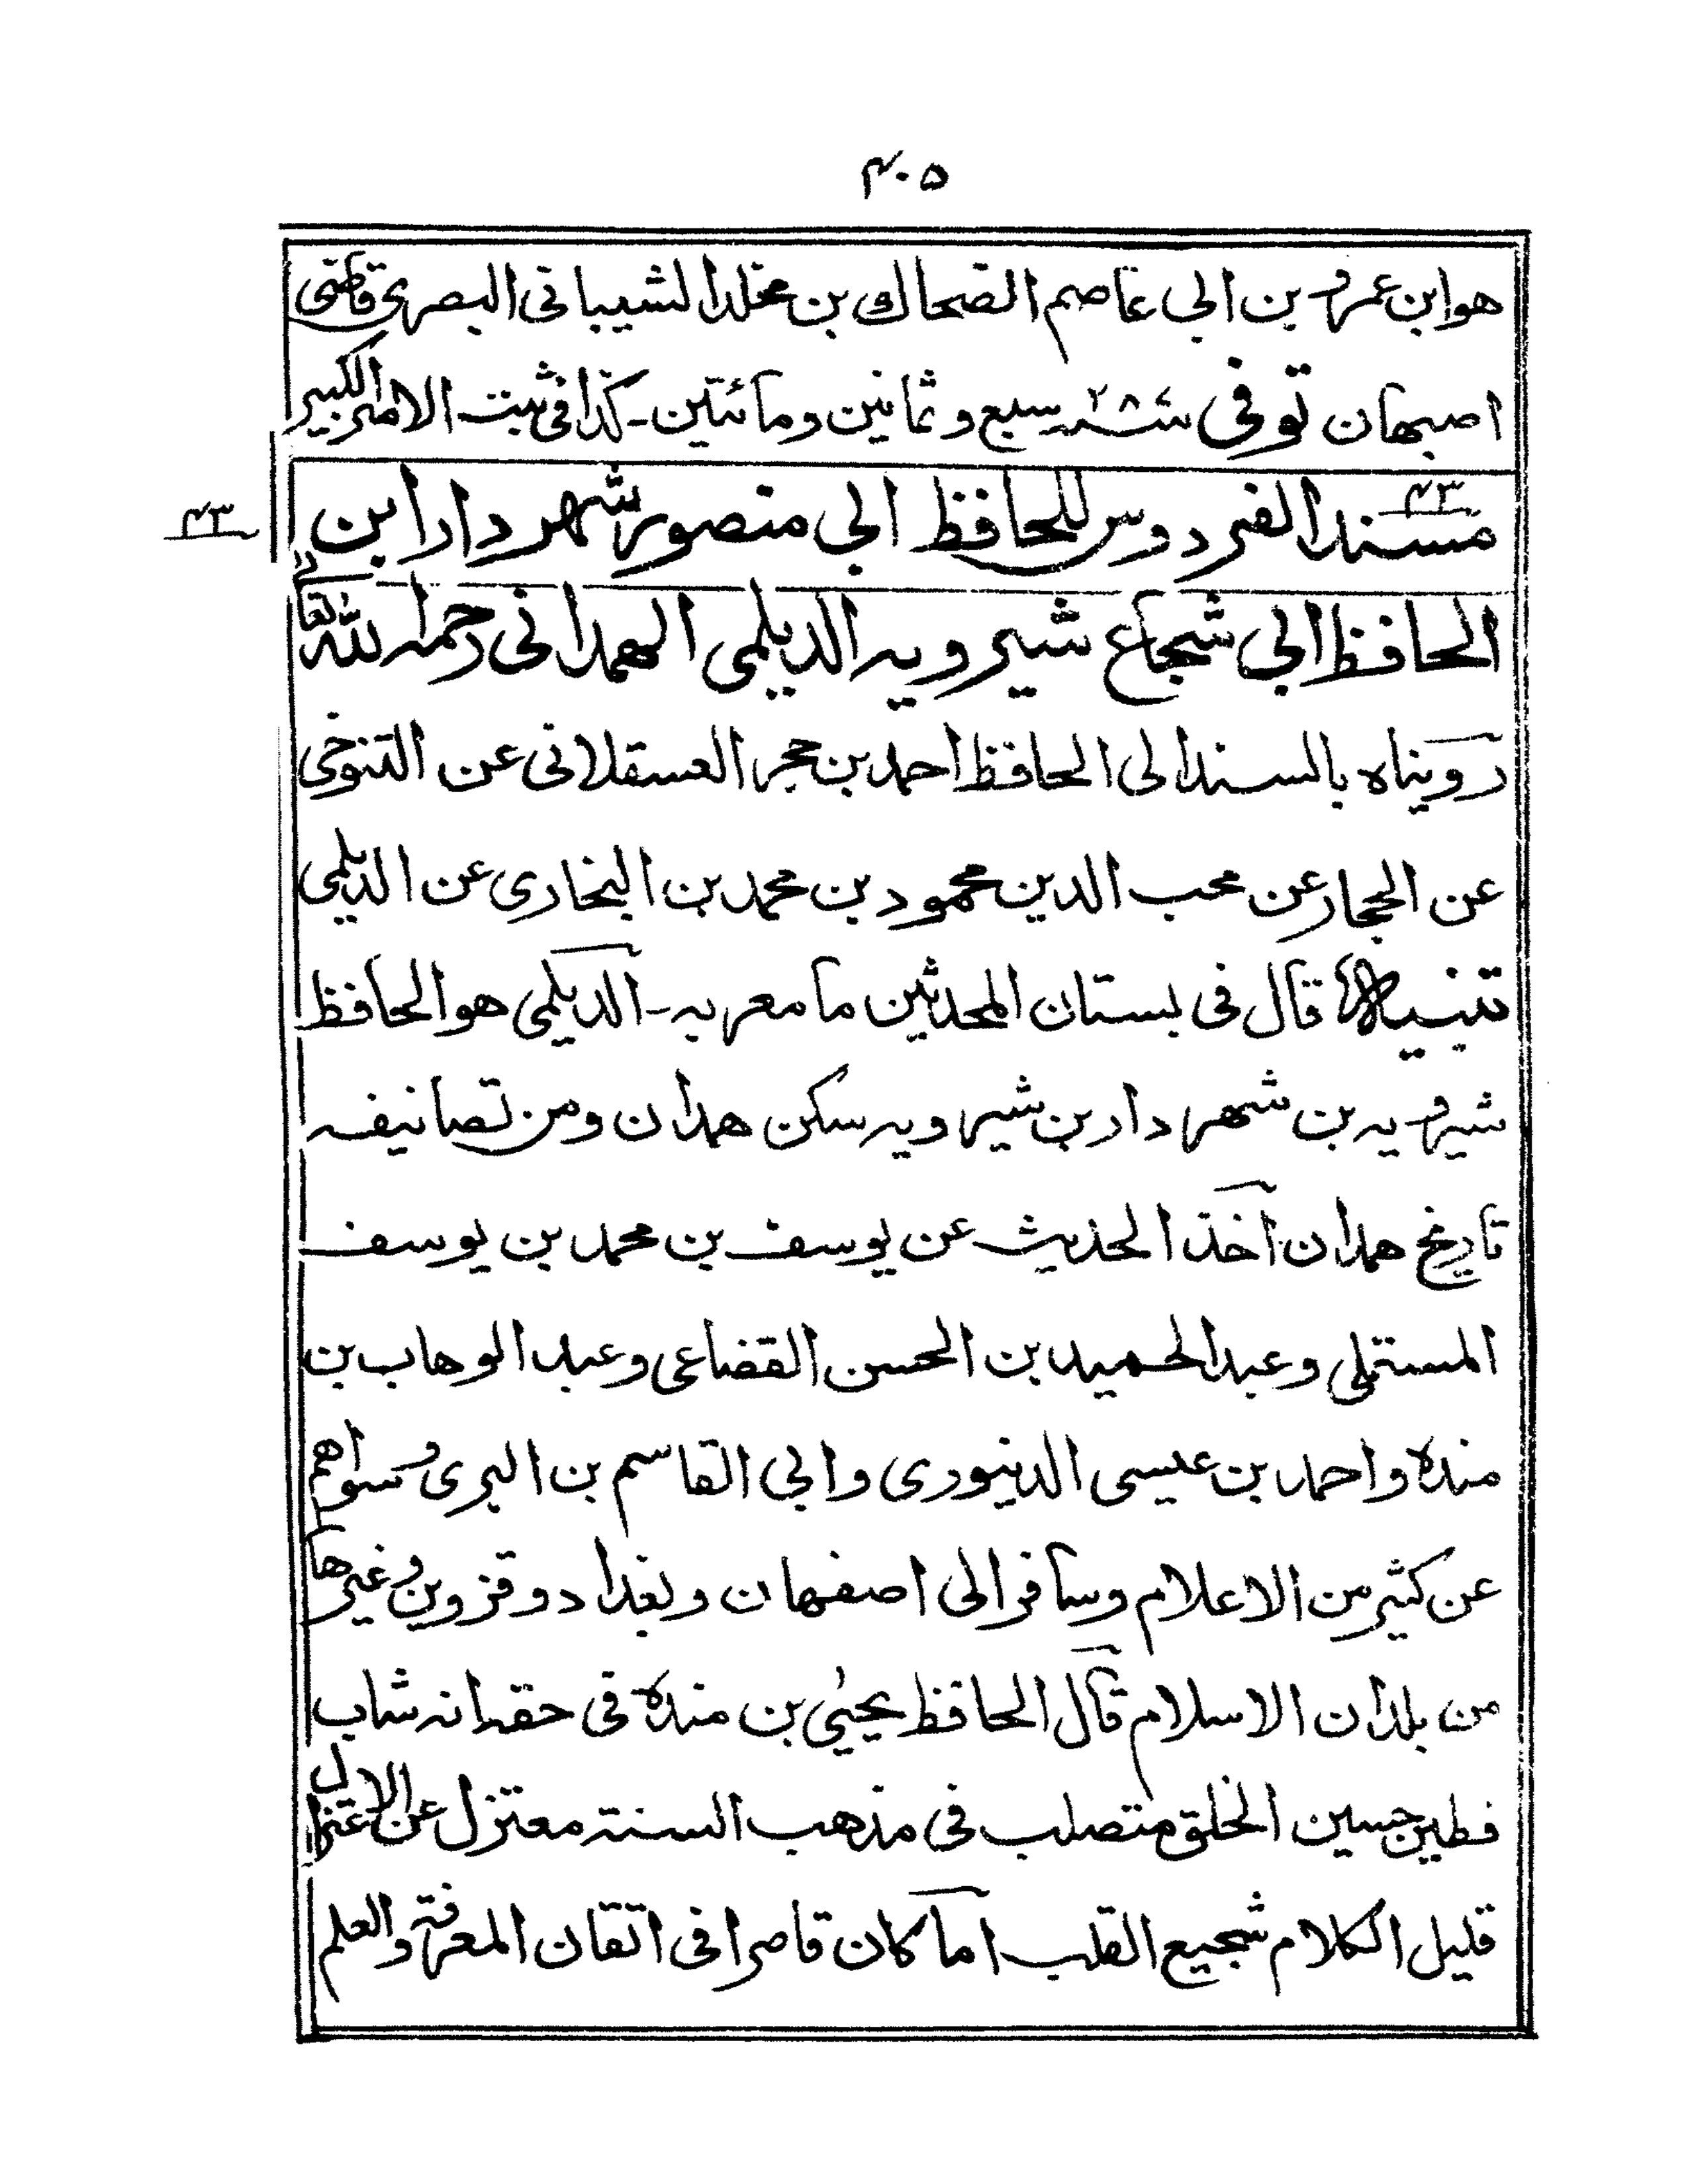 ۴۰۵
هو ابن عمرو بن ابي عاصم الضحاك بن مخلد الشيباني البصري قاضى
اصبهان توفى سنة ٢٨٧ سبع و ثمانين ومائتين - كذا فى ثبت الامير الكبير
۴۳ مسند الفردوس للحافظ ابي منصور شهر دار ابن
۴۳
الحافظ ابي شجاع شيرويه الديلمى الهمدانى رحمه الله تعالى
رويناه بالسند الى الحافظ احمد بن حجر العسقلانى عن التنوخى
عن الحجار عن محب الدين محمود بن محمد بن البخارى عن الديلمى
تنبيه قال فى بستان المحدثين ما معربه - الديلمى هو الحافظ
شيرويه بن شهر دار بن شيرويه سكن همدان ومن تصانيفه
تاريخ همدان اخذ الحديث عن يوسف بن محمد بن يوسف
المستملى وعبد الحميد بن الحسن القضاعى وعبد الوهاب بن
منده واحمد بن عيسى الدينورى وابي القاسم بن البرى وسواهم
عن كثير من الاعلام وسافر الى اصفهان وبغداد وقزوين وغيرها
من بلدان الاسلام قال الحافظ يحيٰي بن منده فى حقه انه شاب
فطين حسين الخلق متصلب فى مذهب السنة معتزل عن الاعتزال
قليل الكلام شجيع القلب اما كان قاصرا فى اتقان المعرفة والعلم